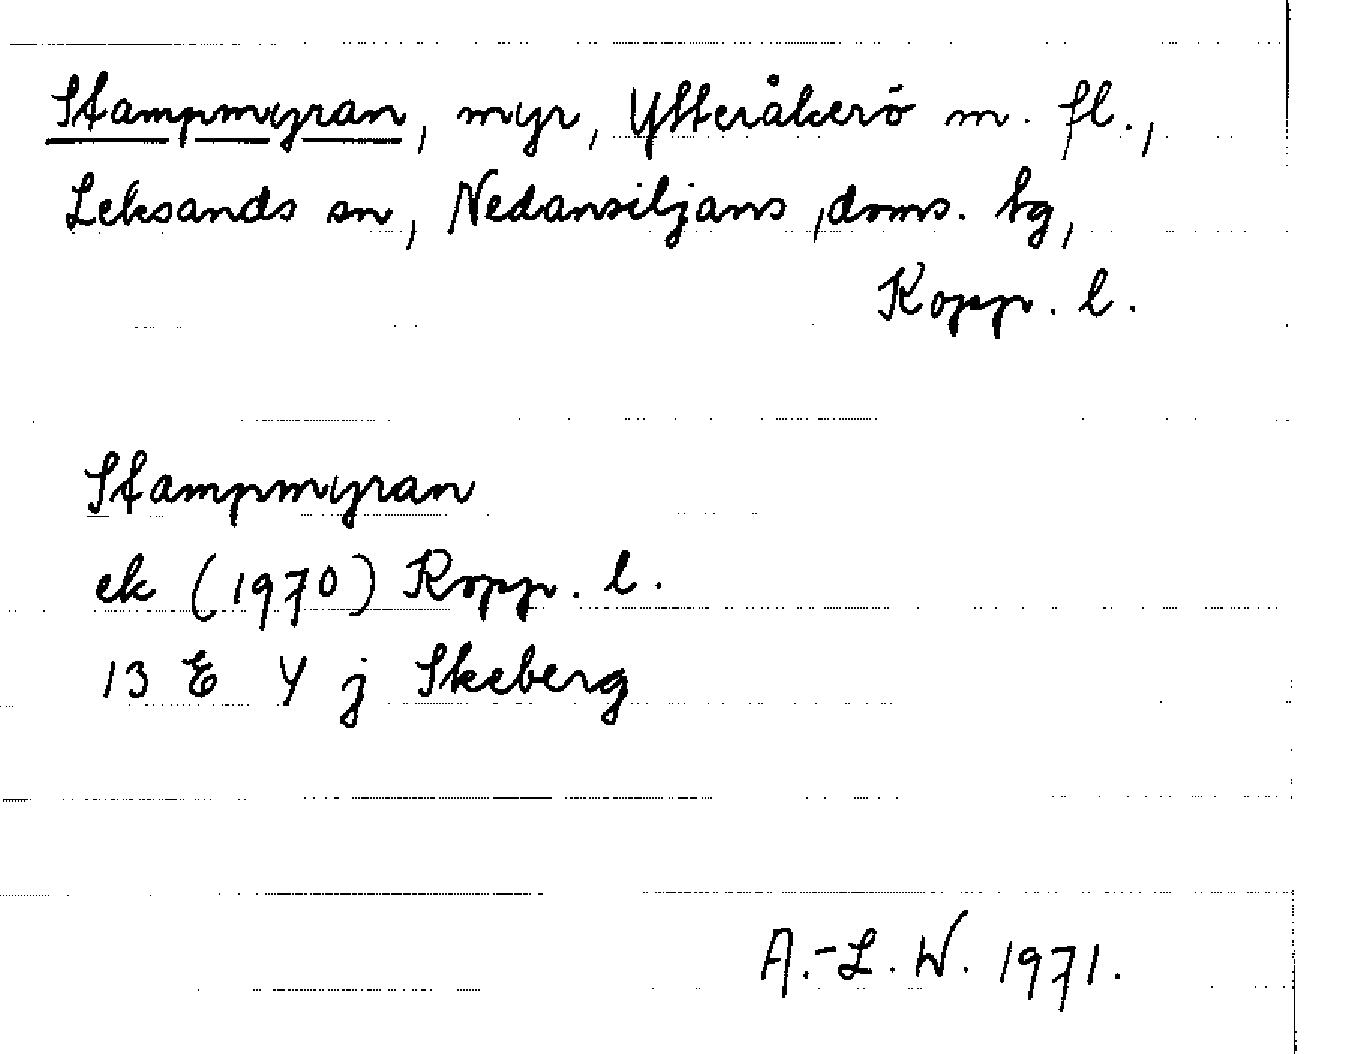 Stampmyran, myr, Ytteråkerö m. fl.,
Leksands sn, Nedansiljans, doms. hg,
Kopp. l.
Stampmyran
ek (1970) Kopp. l.
13 E Y j Skeberg
A.-L. W. 1971.